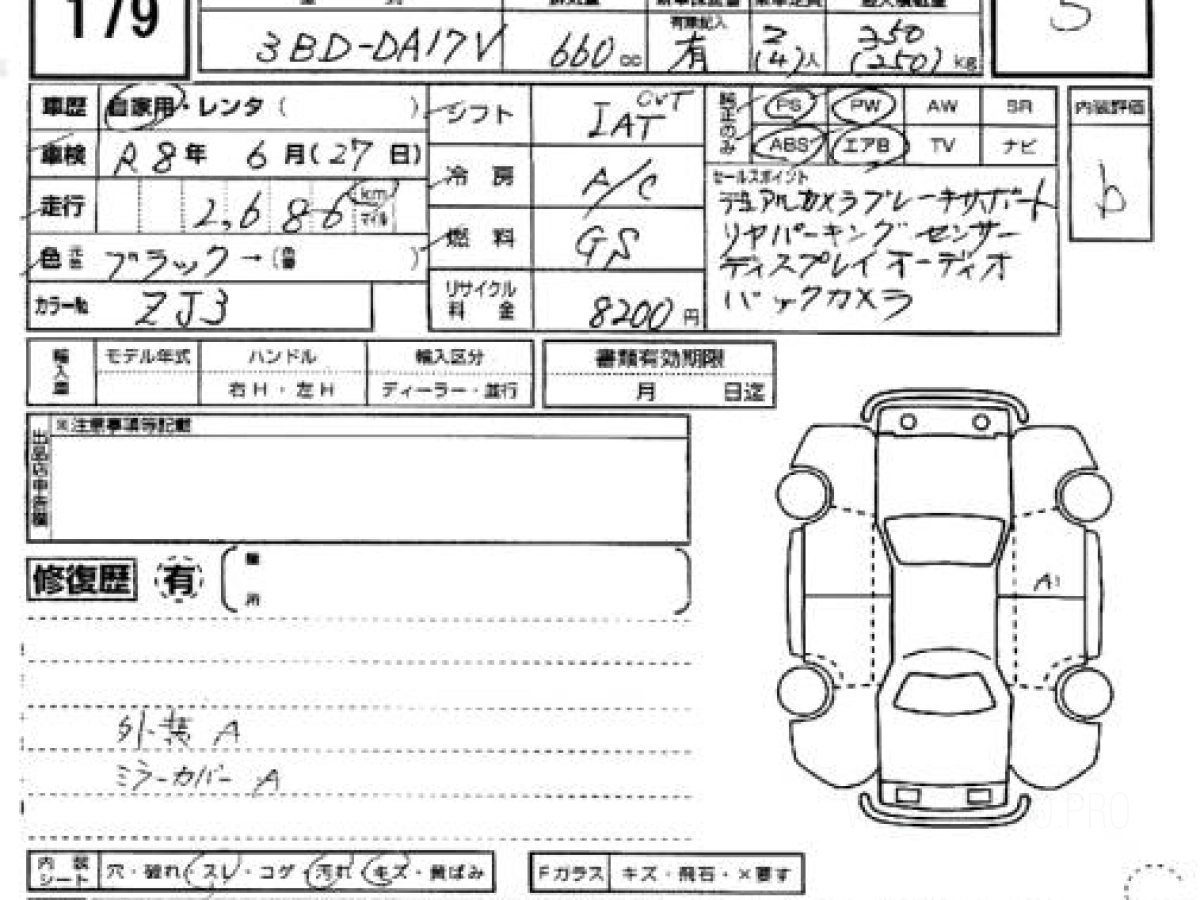 179
有無記入
3BD-DA17V 660 cc 有 2 (4)人 350 (250) kg
5
車歴 自家用・レンタ( )
車検 R8年 6月(27日)
走行 2,686 km マイル
色 元色 ブラック→(色替 )
カラー№ ZJ3
シフト IAT CVT
冷房 A/C
燃料 GS
リサイクル料金 8200円
純正のみ PS PW AW SR
ABS エアB TV ナビ
セールスポイント
デュアルカメラブレーキサポート
リヤパーキングセンサー
ディスプレイオーディオ
バックカメラ
内装評価
b
輸入車 モデル年式 ハンドル 輸入区分
右H・左H ディーラー・並行
書類有効期限
月 日迄
出品店申告欄
※注意事項等記載
修復歴 有
A1
外装 A
ミラーカバー A
内装シート 穴・破れ・スレ・コゲ・汚れ・キズ・黄ばみ
Fガラス キズ・飛石・×要す